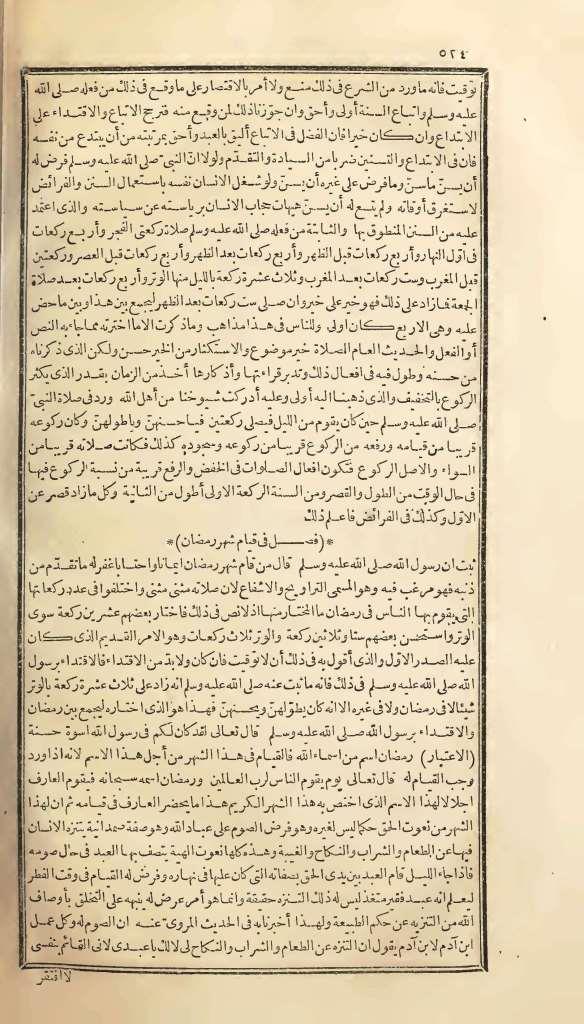 ٥٢٤
توقيت فانه ما ورد من الشرع فى ذلك منع ولا أمر بالاقتصار على ما وقع فى ذلك من فعله صلى الله
عليه وسلم واتباع السنة أولى وأحق وان جوّزنا ذلك لمن وقع منه فترجح الاتباع والاقتداء على
الابتداع وان كان خيرا فان الفضل فى الاتباع أليق بالعبد وأحق بمرتبته من أن يبتدع من نفسه
فان فى الابتداع والتسنين ضربا من السيادة والتقدّم ولولا انّ النبىّ صلى الله عليه وسلم فرض له
أن يسنّ ما سنّ وما فرض على غيره أن يسنّ ولو شغل الانسان نفسه باستعمال السنن والفرائض
لاستغرق أوقاته ولم يتسع له أن يسنّ هيهات حجاب الانسان برياسته عن سياسته والذى اعتمد
عليه من السنن المنطوق بها والثابتة من فعله صلى الله عليه وسلم صلاة ركعتى الفجر وأربع ركعات
فى أوّل النهار وأربع ركعات قبل الظهر وأربع ركعات بعد الظهر وأربع ركعات قبل العصر وركعتين
قبل المغرب وست ركعات بعد المغرب وثلاث عشرة ركعة بالليل منها الوتر وأربع ركعات بعد صلاة
الجمعة فما زاد على ذلك فهو خير على خير وان صلى ست ركعات بعد الظهر ليجمع بين هذا وبين ما حض
عليه وهى الاربع كان اولى وللناس فى هذا مذاهب وما ذكرت الا ما اخترته مما جاء به النص
أو الفعل والحديث العام الصلاة خير موضوع والاستكثار من الخير حسن ولكن الذى ذكرناه
من حسنه وطول فيه فى افعال ذلك وتدبر قراءتها وأذكارها أخذ من الزمان بقدر الذى يكثر
الركوع بالتخفيف والذى ذهبنا اليه أولى وعليه أدركت شيوخنا من أهل الله ورد فى صلاة النبىّ
صلى الله عليه وسلم حين كان يقوم من الليل فيصلى ركعتين فيا حسنهنّ ويا طولهنّ وكان ركوعه
قريبا من قيامه ورفعه من الركوع قريبا من ركوعه وسجوده كذلك فكانت صلاته قريبا من
السواء والاصل الركوع فتكون افعال الصلوات فى الخفض والرفع قريبة من نسبة الركوع فيها
فى حال الوقت من الطول والقصر ومن السنة الركعة الاولى أطول من الثانية وكل ما زاد قصر عن
الاوّل وكذلك فى الفرائض فاعلم ذلك
*(فصل فى قيام شهر رمضان)*
ثبت ان رسول الله صلى الله عليه وسلم قال من قام شهر رمضان ايمانا واحتسابا غفر له ما تقدّم من
ذنبه فهو مرغب فيه وهو المسمى التراويح والاشفاع لان صلاته مثنى مثنى واختلفوا فى عدد ركعاتها
التى يقوم بها الناس فى رمضان ما المختار منها اذ لا نص فى ذلك فاختار بعضهم عشرين ركعة سوى
الوتر واستحسن بعضهم ستا وثلاثين ركعة والوتر ثلاث ركعات وهو الامر القديم الذى كان
عليه الصدر الاوّل والذى أقول به فى ذلك أن لا توقيت فان كان ولا بدّ من الاقتداء فالاقتداء برسول
الله صلى الله عليه وسلم فى ذلك فانه ما ثبت عنه صلى الله عليه وسلم انه زاد على ثلاث عشرة ركعة بالوتر
شيئا لا فى رمضان ولا فى غيره الا انه كان يطوّلهنّ ويحسنهنّ فهذا هو الذى اختاره ليجمع بين رمضان
والاقتداء برسول الله صلى الله عليه وسلم قال تعالى لقد كان لكم فى رسول الله اسوة حسنة
(الاعتبار) رمضان اسم من اسماء الله فالقيام فى هذا الشهر من أجل هذا الاسم لانه اذا ورد
وجب القيام له قال تعالى يوم يقوم الناس لرب العالمين ورمضان اسمه سبحانه فيقوم العارف
اجلالا لهذا الاسم الذى اختص به هذا الشهر الكريم هذا ما يحضر العارف فى قيامه ثم ان لهذا
الشهر من نعوت الحق حكما ليس لغيره وهو فرض الصوم على عباد الله وهو صفة صمدانية يتنزه الانسان
فيها عن الطعام والشراب والنكاح والغيبة وهذه كلها نعوت الهية يتصف بها العبد فى حال صومه
فاذا جاء الليل قام العبد بين يدى الحق بصفاته التى كان عليها فى نهاره وفرض له القيام فى وقت الفطر
ليعلم انه عبد فقير متغذ ليس له ذلك التنزه حقيقة وانما هو أمر عرض له ينبهه على التخلق بأوصاف
الله من التنزيه عن حكم الطبيعة ولهذا أخبرنا به فى الحديث المروىّ عنه ان الصوم له وكل عمل
ابن آدم لابن آدم يقول ان التنزه عن الطعام والشراب والنكاح لى لا لك يا عبدى لانى القائم بنفسى
لا أفتقر